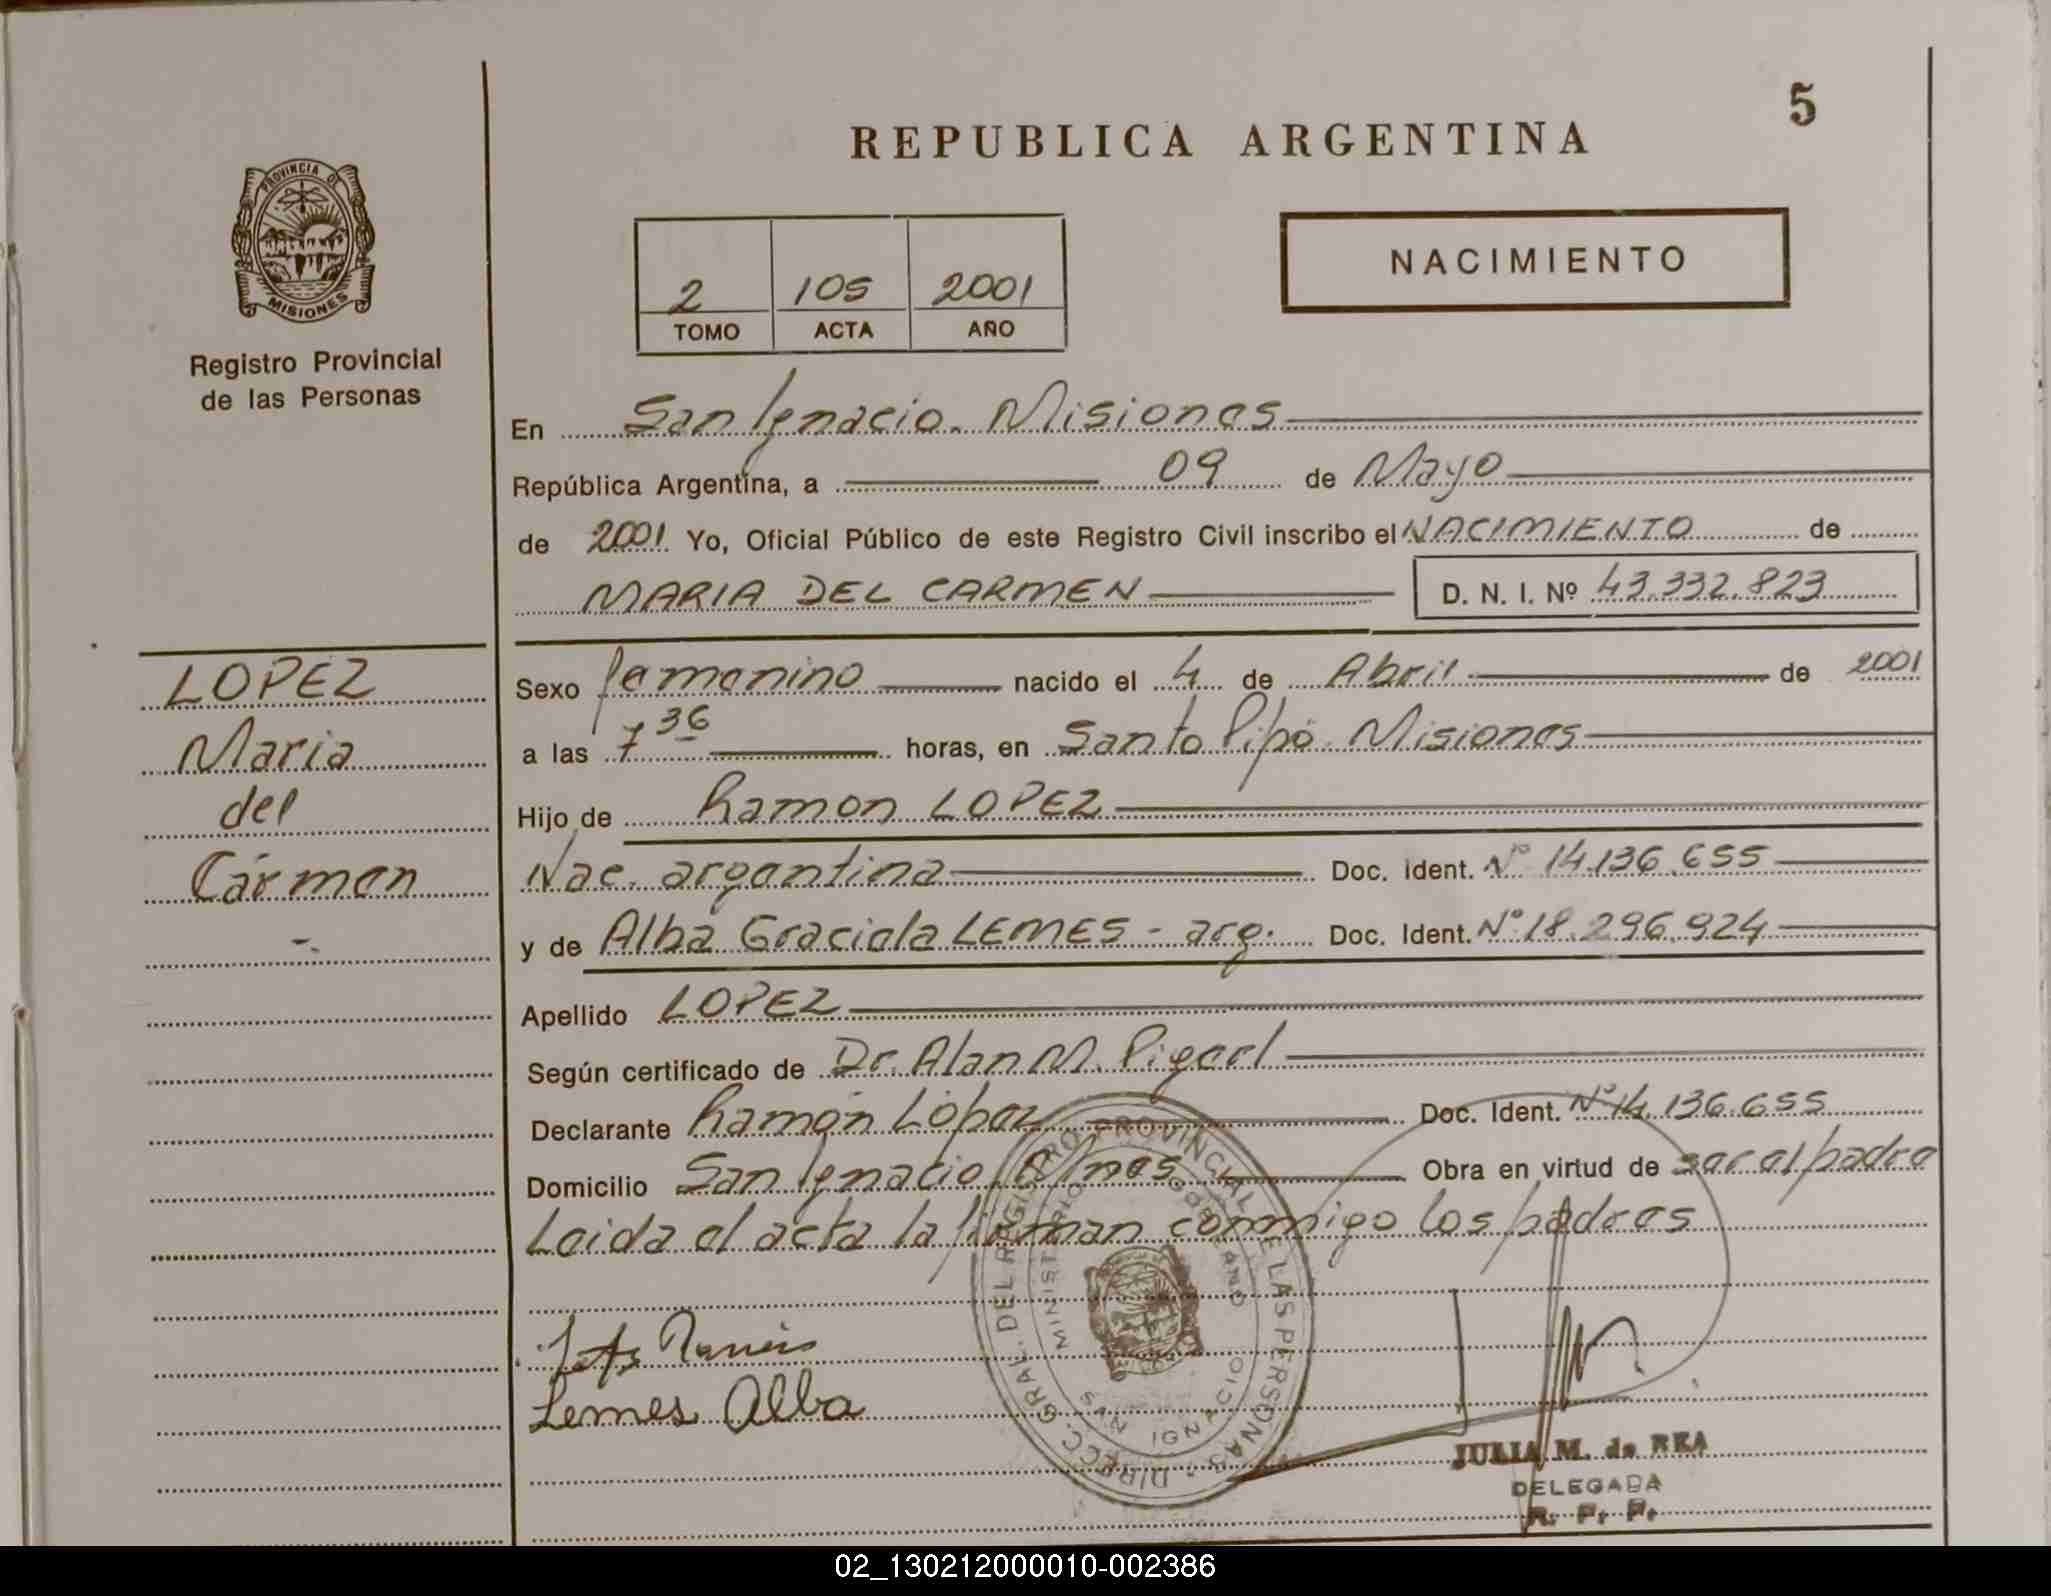 5
REPUBLICA ARGENTINA
PROVINCIA DE
MISIONES
NACIMIENTO
2 105 2001
TOMO ACTA AÑO
Registro Provincial
de las Personas
En San Ignacio. Misiones
República Argentina, a 09 de Mayo
de 2001 Yo, Oficial Público de este Registro Civil inscribo el NACIMIENTO de
MARIA DEL CARMEN D. N. I. Nº 43.332.823
LOPEZ
Maria
del
Cármen
Sexo femenino nacido el 4 de Abril de 2001
a las 7 36 horas, en Santo Pipó. Misiones
Hijo de Ramon LOPEZ
Nac. argentina Doc. Ident. Nº 14.136.655
y de Alba Graciela LEMES - arg. Doc. Ident. Nº 18.296.924
Apellido LOPEZ
Según certificado de Dr. Alan M.
Declarante Ramón López Doc. Ident. Nº 14.136.655
Domicilio San Ignacio Mnes Obra en virtud de ser el padre
Leida el acta la firman conmigo los padres
Lemes Alba
DIRECC. GRAL. DEL REGISTRO PROVINCIAL DE LAS PERSONAS
MINISTERIO GOBIERNO
SAN IGNACIO
JULIA M. de REA
DELEGADA
R. P. P.
02_130212000010-002386